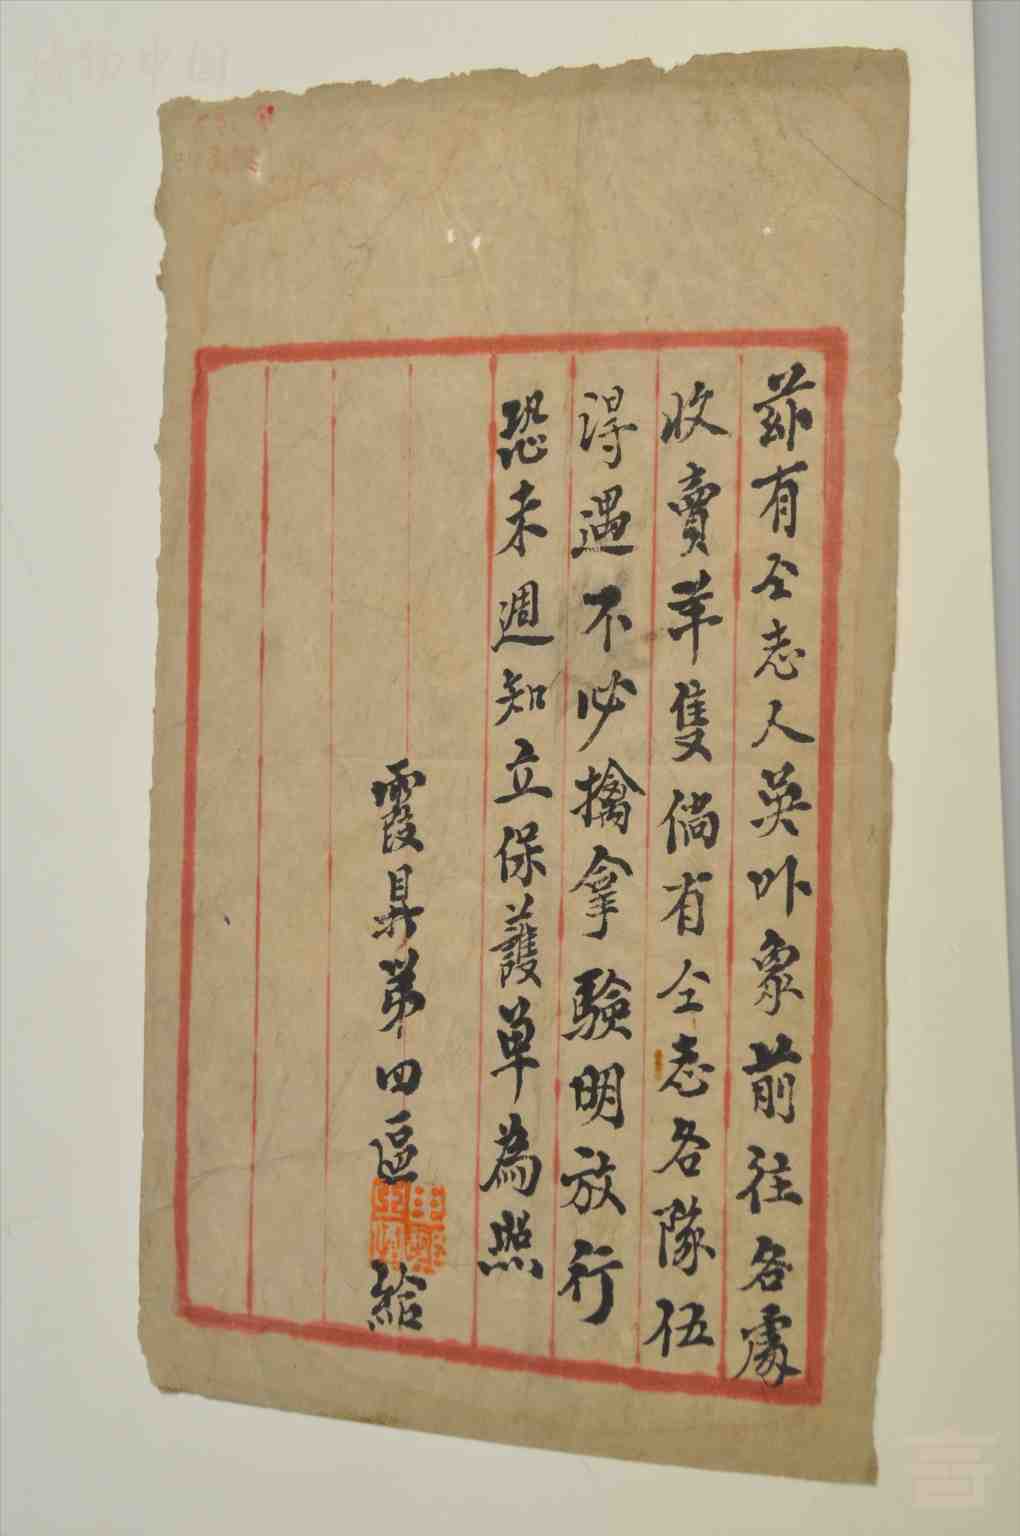 茲有仝志人英卟象前往各處
收賣羊隻倘有仝志各隊伍
得遇不必擒拿驗明放行
恐未週知立保護單為照
霞县第四區給